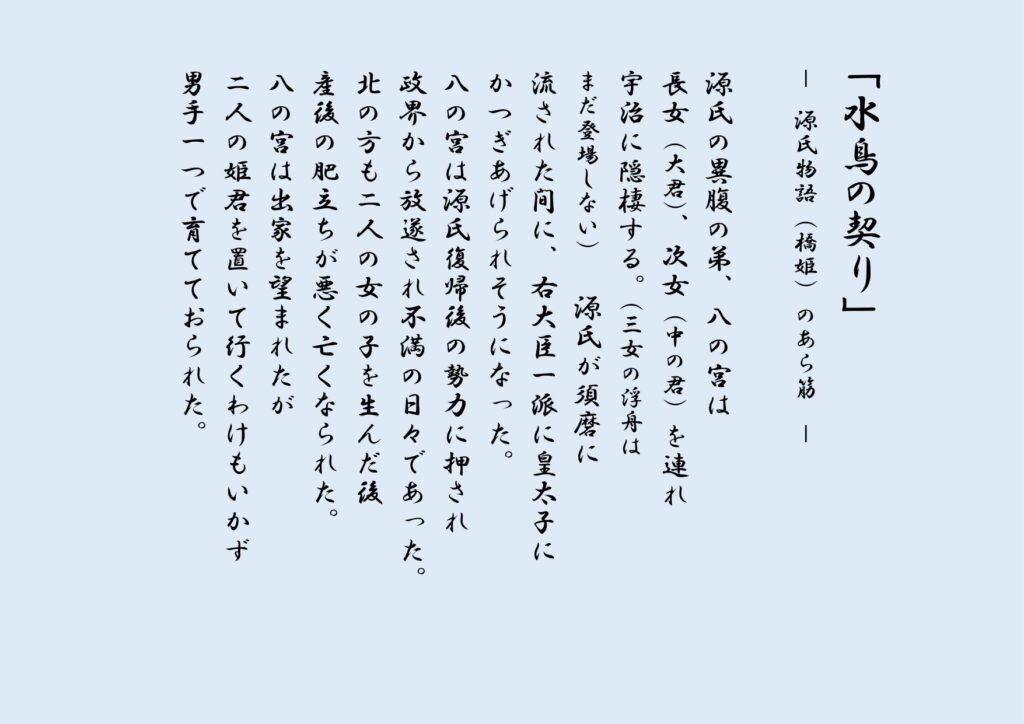 「水鳥の契り」
― 源氏物語（橋姫）のあら筋 ―
源氏の異腹の弟、八の宮は
長女（大君）、次女（中の君）を連れ
宇治に隠棲する。（三女の浮舟は
まだ登場しない） 源氏が須磨に
流された間に、右大臣一派に皇太子に
かつぎあげられそうになった。
八の宮は源氏復帰後の勢力に押され
政界から放遂され不満の日々であった。
北の方も二人の女の子を生んだ後
産後の肥立ちが悪く亡くなられた。
八の宮は出家を望まれたが
二人の姫君を置いて行くわけもいかず
男手一つで育てておられた。